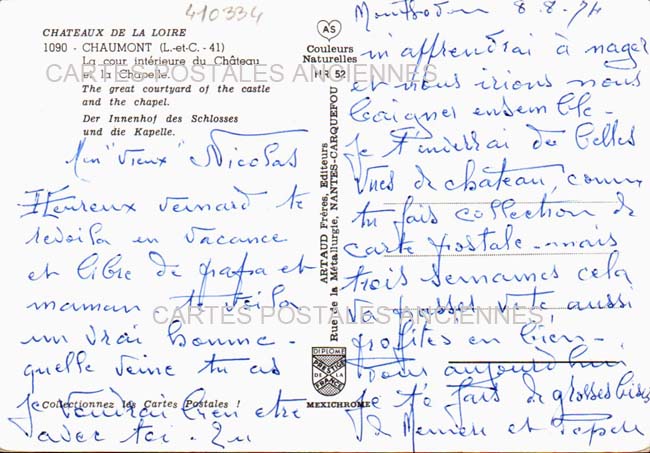 410334
CHATEAUX DE LA LOIRE
1090 - CHAUMONT (L.-et-C. - 41)
La cour intérieure du Château
et la Chapelle.
The great courtyard of the castle
and the chapel.
Der Innenhof des Schlosses
und die Kapelle.
AS
Couleurs
Naturelles
HR 52
CARTES POSTALES ANCIENNES
Mon "vieux" Nicolas
Heureux veinard te
revoila en vacance
et libre de papa et
maman te voila
un vrai homme -
quelle veine tu as
je voudrai bien etre
avec toi. Tu
Collectionnez les Cartes Postales !
ARTAUD Frères, Editeurs
Rue de la Métallurgie, NANTES-CARQUEFOU
CARTES POSTALES ANCIENNES
DIPLOME
PRESTIGE
DE LA
FRANCE
MEXICHROME
8-8-74
m'apprendrai à nager
et nous irions nous
baigner ensemble -
je t'enverrai de belles
vues de chateau, comme
tu fais collection de
carte postale - mais
trois semaines cela
va passer vite aussi
profites en bien -
Pour aujourd'hui
je te fais de grosses bises
de Memere et Pepere